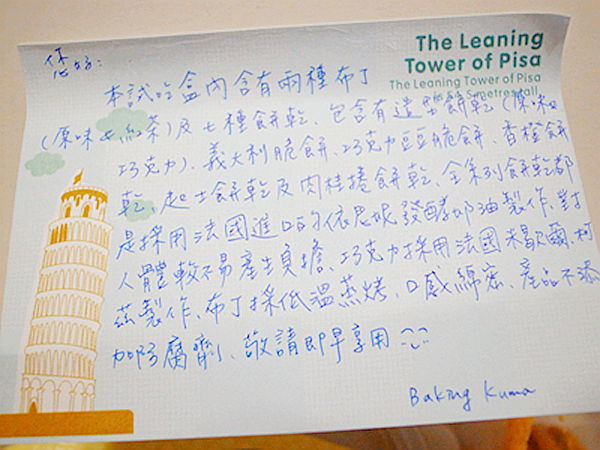 The Leaning
Tower of Pisa
The Leaning Tower of Pisa
您好:
本試吃盒內含有兩種布丁
(原味&紅茶)及七種餅乾、包含有造型餅乾(原味&
巧克力)、義大利脆餅、巧克力豆豆脆餅、香橙餅
乾、起士餅乾及肉桂捲餅乾、全系列餅乾都
是採用法國進口的依思妮發酵奶油製作、對
人體較不易產生負擔、巧克力採用法國米歇爾.柯
茲製作、布丁採低溫蒸烤、口感綿密、產品不添
加防腐劑、敬請即早享用
Baking Kuma